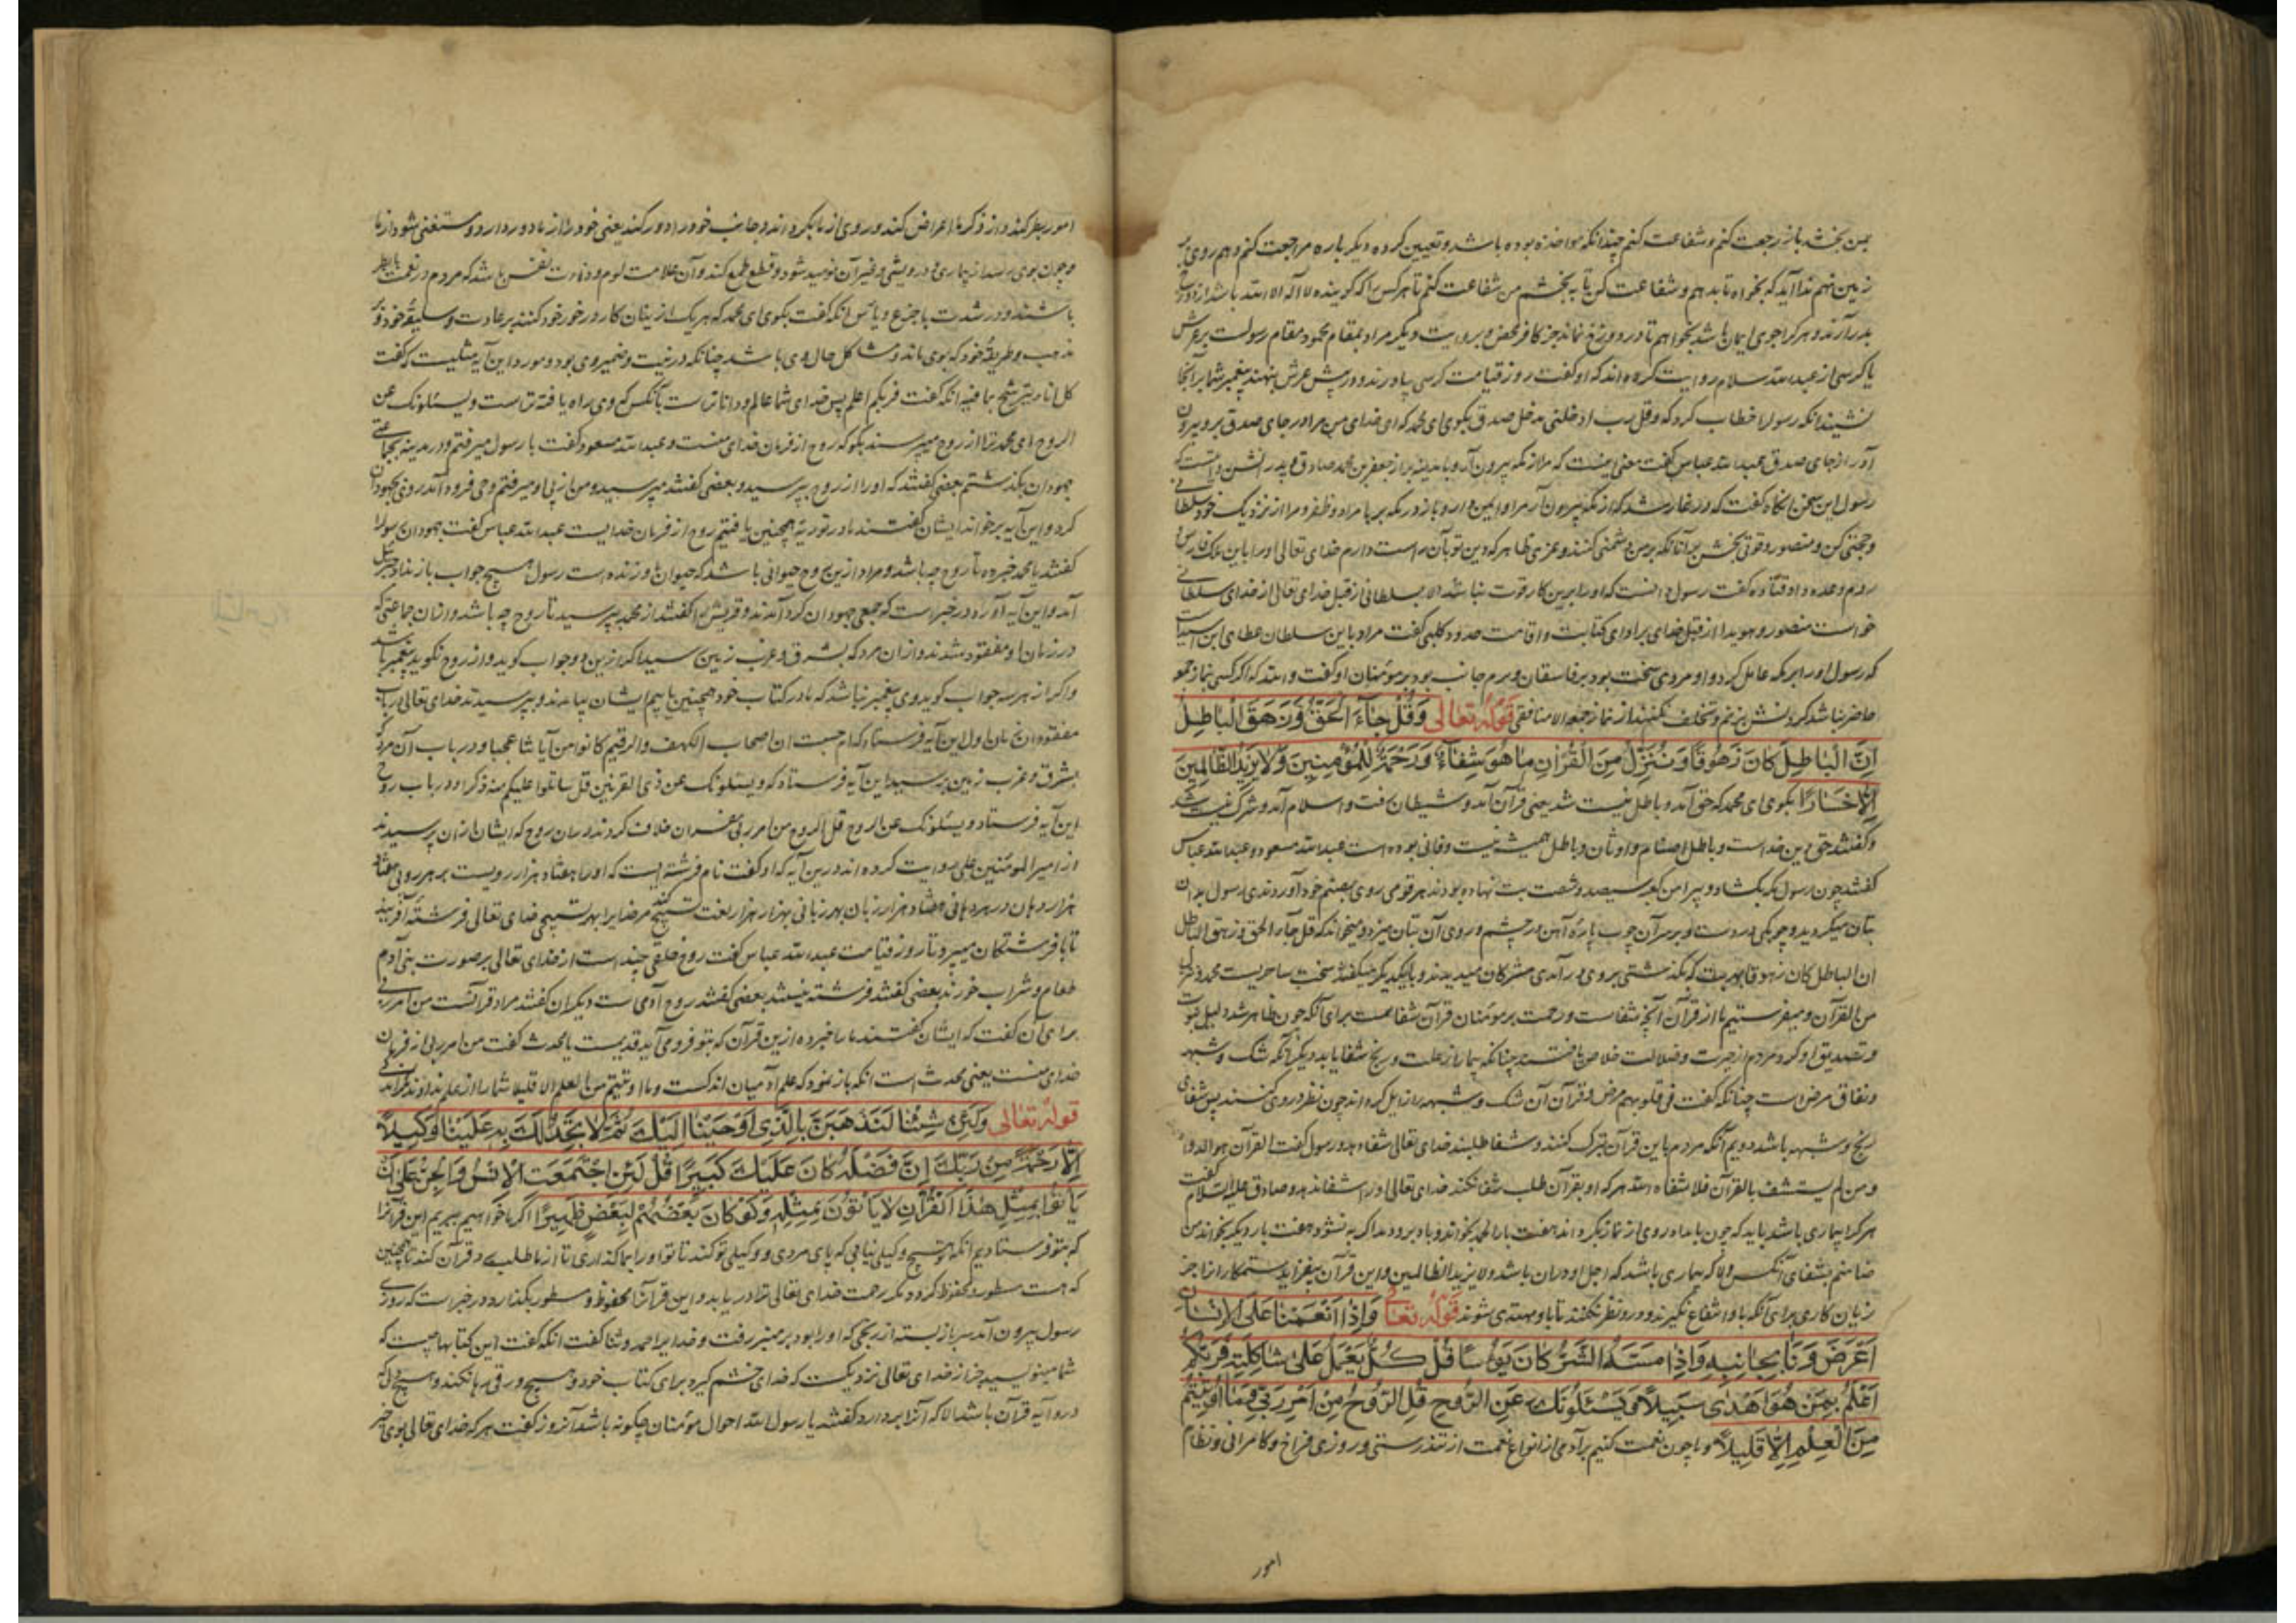 من بخشد باز رجعت کنم و شفاعت کنم چندانکه مواخذه بوده باشد و تعیین کرده دیکر باره مراجعت کنم و هم روی بر
زمین نهم ندا آید که بخواه تا بدهم و شفاعت کن تا ببخشم من شفاعت کنم تا هر کس را که کوینده لا اله الا الله باشد از دوزخ
بدر آرند و هر کرا جوی ایمان باشد بخواهم تا در دوزخ نماند جز کافر محض و بروایت دیکر مراد بمقام محمود مقام رسولست بر عرش
یا کرسی از عبدالله سلام روایت کرده اند که او کفت روز قیامت کرسی بیاورند و در پیش عرش بنهند پیغمبر شما بر آنجا
نشیند آنکه رسولرا خطاب کرد که و قل رب ادخلنی مدخل صدق بکوی ای محمد که ای خدای من مرا در جای صدق بر و بیرون
آور از جای صدق عبدالله عباس کفت معنی اینست که مرا از مکه بیرون آر و بمدینه بر از جعفر بن محمد صادق و پدرانش
رسول این سخن آنکاه کفت که در غار شد که از مکه بیرون آر مرا و ایمن دار و باز در مکه بر با مراد و ظفر و مرا از نزدیک خود سلطانی
و حجتی کن و منصور و قوتی بخش بر آنانکه بر من دشمنی کنند و عزی ظاهر که دین تو بآن راست دارم خدای تعالی او را باین ملک فارس
روم وعده داد قتاده کفت رسول دانست که او را برین کار قوت نباشد الا بسلطانی از قبل خدای تعالی از خدای سلطانی
خواست منصور و هویدا از قبل خدای برای کتابت و اقامت حدود کلبی کفت مراد باین سلطان عطای ابن اسیدست
که رسول او را بر مکه عامل کرد و او مردی سخت بود بر فاسقان و نرم جانب بود بر مؤمنان او کفت والله که اکر کسی بنماز جمعه
حاضر نباشد کردنش بزنم و تخلف نکنند از نماز جمعه الا منافقی قوله تعالی وَقُلْ جَآءَ الْحَقُّ وَزَهَقَ الْبَاطِلُ
اِنَّ الْبَاطِلَ كَانَ زَهُوقًا وَنُنَزِّلُ مِنَ الْقُرْاٰنِ مَا هُوَ شِفَآءٌ وَرَحْمَةٌ لِلْمُؤْمِنِينَ وَلَا يَزِيدُ الظَّالِمِينَ
اِلَّا خَسَارًا بکوی ای محمد که حق آمد و باطل نیست شد یعنی قرآن آمد و شیطان رفت و اسلام آمد و شرک نیست شد
و کفتند حق دین خداست و باطل اصنام و اوثان و باطل همیشه نیست و فانی بوده است عبدالله مسعود و عبدالله عباس
کفتند چون رسول مکه بکشاد و پیرامن کعبه سیصد و شصت بت نهاده بودند هر قومی روی بصنم خود آوردندی رسول بدان
بتان میکردید و چوبکی در دست و بر سر آن چوب پاره آهن در چشم و روی آن بتان میزد و میخواند که قل جاء الحق و زهق الباطل
ان الباطل کان زهوقا بهر بت که بکذشتی بروی در آمدی مشرکان میدیدند و بایکدیکر میکفتند سخت ساحریست محمد و ننزل
من القرآن و میفرستیم ما از قرآن آنچه شفاست و رحمت بر مؤمنان قرآن شفاست برای آنکه چون ظاهر شد دلیل نبوت
و تصدیق او کرد مردم از حیرت و ضلالت خلاص یافتند چنانکه بیمار از علت و رنج شفا یابد دیکر آنکه شک و شبهه
و نفاق مرض است چنانکه کفت فی قلوبهم مرض و قرآن آن شک و شبهه را زایل کرداند چون نظر در وی کنند پس شفای
رنج و شبهه باشد دویم آنکه مردم باین قرآن تبرک کنند و شفا طلبند خدای تعالی شفاء بدهد و رسول کفت القرآن هو الدواء
و من لم یستشف بالقرآن فلا شفاه الله هر که او بقرآن طلب شفا نکند خدای تعالی او را شفا ندهد و صادق علیه السلام کفت
هر کرا بیماری باشد باید که چون بامداد روی از نماز بکرداند هفت بار الحمد بخواند و باد برو دمد اکر به نشود هفت بار دیکر بخواند من
ضامنم بشفای آنکس والا که بیماری باشد که اجل او در آن باشد ولا یزید الظالمین و این قرآن بیفزاید ستمکارانرا جز
زیان کاری برای آنکه باو انتفاع نکیرند و درو نظر نکنند تا باو مهتدی شوند قوله تعالی وَاِذَا اَنْعَمْنَا عَلَى الْاِنْسَانِ
اَعْرَضَ وَنَاٰ بِجَانِبِهِ وَاِذَا مَسَّهُ الشَّرُّ كَانَ يَؤُسًا قُلْ كُلٌّ يَعْمَلُ عَلٰى شَاكِلَتِهِ فَرَبُّكُمْ
اَعْلَمُ بِمَنْ هُوَ اَهْدٰى سَبِيلًا وَيَسْئَلُونَكَ عَنِ الرُّوحِ قُلِ الرُّوحُ مِنْ اَمْرِ رَبِّي وَمَا اُوتِيتُمْ
مِنَ الْعِلْمِ اِلَّا قَلِيلًا و ما چون نعمت کنیم بر آدمی از انواع نعمت از تندرستی و روزی فراخ و کامرانی و نظام
امور
امور بطر کند و از ذکر ما اعراض کند و روی از ما بکرداند و جانب خود را دور کند یعنی خود را از ما دور دارد و مستغنی شود از ما
و چون بوی رسد از بیماری و درویشی و غیر آن نومید شود و قطع طمع کند و آن علامت لوم و دنائت نفس باشد که مردم در نعمت با بطر
باشند و در شدت با جزع و یأس آنکه کفت بکوی ای محمد که هر یک ازینان کار در خور خود کنند بر عادت و سلیقه خود و بر
مذهب و طریقه خود که بوی ماند و مشاکل حال وی باشد چنانکه در نیت و ضمیر وی بود و مورد این آیه مثلیست که کفت
کل اناء یترشح بما فیه آنکه کفت فربکم اعلم پس خدای شما عالم و داناترست بآنکس که وی راه یافته ترست و یسئلونک عن
الروح ای محمد ترا از روح میپرسند بکو که روح از فرمان خدای منست و عبدالله مسعود کفت با رسول میرفتم و در مدینه بجماعتی
جهودان بکذشتم بعضی کفتند که او را از روح بپرسید و بعضی کفتند مپرسید و من از پی او میرفتم وحی فرود آمد روی بجهودان
کرد و این آیه برخواند ایشان کفتند ما در توریة همچنین یافتیم روح از فرمان خدایست عبدالله عباس کفت جهودان رسولرا
کفتند یا محمد خبر ده تا روح چه باشد و مراد ازین روح حیوانی باشد که حیوان باو زنده است رسول هیچ جواب باز نداد جبرئیل
آمد و این آیه آورد و در خبر است که جمعی جهودان کرد آمدند و قریش را کفتند از محمد بپرسید تا روح چه باشد و از آن جماعتی که
در زمان او مفقود شدند و از آن مرد که بشرق و غرب زمین رسید اکر ازین دو جواب کوید و از روح نکوید پیغمبر باشد
و اکر از هر سه جواب کوید وی پیغمبر نباشد که ما در کتاب خود همچنین یابیم ایشان بیامدند و بپرسیدند خدای تعالی در باب
مفقودان زمان اول این آیه فرستاد که ام حسبت ان اصحاب الکهف والرقیم کانوا من آیاتنا عجبا و در باب آن مرد که
بشرق و غرب زمین رسید این آیه فرستاد که و یسئلونک عن ذی القرنین قل ساتلوا علیکم منه ذکرا و در باب روح
این آیه فرستاد و یسئلونک عن الروح قل الروح من امر ربی مفسران خلاف کردند در آن روح که ایشان از آن پرسیدند
از امیر المومنین علی روایت کرده اند درین آیه که او کفت نام فرشته ایست که او را هفتاد هزار رویست بر هر رویی هفتاد
هزار دهان در هر دهانی هفتاد هزار زبان بهر زبانی بهزار هزار لغت تسبیح کند مر خدایرا بهر تسبیحی خدای تعالی فرشته آفریند
تا با فرشتکان میپرد تا روز قیامت عبدالله عباس کفت روح خلقی چند است از خدای تعالی بر صورت بنی آدم
طعام و شراب خورند بعضی کفتند فرشته نیستند بعضی کفتند روح آدمی ست دیکران کفتند مراد قرآنست من امر ربی
برای آن کفت که ایشان کفتند ما را خبر ده ازین قرآن که بتو فرو می آید قدیمست یا محدث کفت من امر ربی از فرمان
خدای منست یعنی محدث است آنکه باز نمود که علم آدمیان اندکست و ما اوتیتم من العلم الا قلیلا شما را از علم نداده اند مکر اندکی
قوله تعالی وَلَئِنْ شِئْنَا لَنَذْهَبَنَّ بِالَّذِي اَوْحَيْنَا اِلَيْكَ ثُمَّ لَا تَجِدُ لَكَ بِهِ عَلَيْنَا وَكِيلًا
اِلَّا رَحْمَةً مِنْ رَبِّكَ اِنَّ فَضْلَهُ كَانَ عَلَيْكَ كَبِيرًا قُلْ لَئِنِ اجْتَمَعَتِ الْاِنْسُ وَالْجِنُّ عَلٰى اَنْ
يَاْتُوا بِمِثْلِ هٰذَا الْقُرْاٰنِ لَا يَاْتُونَ بِمِثْلِهِ وَلَوْ كَانَ بَعْضُهُمْ لِبَعْضٍ ظَهِيرًا اکر ما خواهیم ببریم این قرآنرا
که بتو فرستادیم آنکه هیچ وکیلی نیابی که پای مردی و وکیلی تو کند تا تو او را بما کذاری تا از ما طلب قرآن کند تا همچنین
که هست مسطور و محفوظ کردد مکر رحمت خدای تعالی ترا دریابد و این قرآنرا محفوظ و مسطور بکذارد و در خبر است که روزی
رسول بیرون آمد سر باز بسته از رنجی که او را بود بر منبر رفت و خدایرا حمد و ثنا کفت آنکه کفت این کتابها چیست که
شما مینویسید جز از خدای تعالی نزدیکست که خدای خشم کیرد برای کتاب خود و هیچ ورقی رها نکند و هیچ دلی که
درو آیه قرآن باشد الا که آنرا بردارد کفتند یا رسول الله احوال مؤمنان چکونه باشد آنروز کفت هر که خدای تعالی بوی خیر